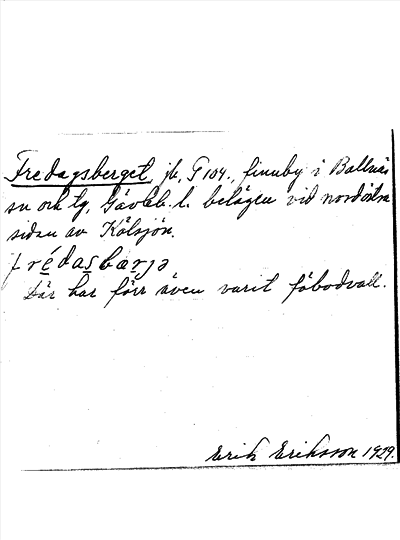 Fredagsberget, jb, T 104., finnby i Bollnäs
sn och tg, Gävleb. l. belägen vid nordöstra
sidan av Kölsjön.
frédasbærjə
Där har förr även varit fäbodvall.
Erik Eriksson 1929.